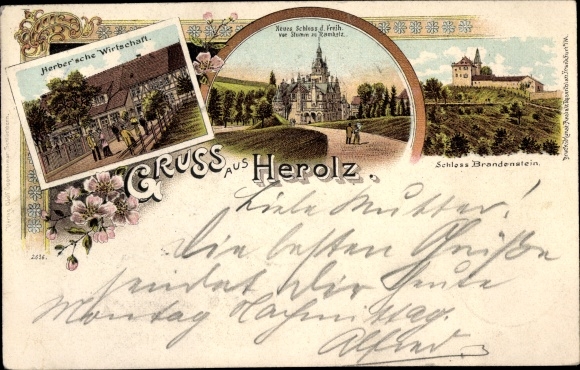 Herber'sche Wirtschaft.
Neues Schloss d. Freih.
von Stumm in Ramholz.
Schloss Brandenstein.
GRUSS AUS HEROLZ.
2636.
Liebe Mutter!
Die besten Grüße
sendet Dir heute
Montag Nachmittag.
Alfred